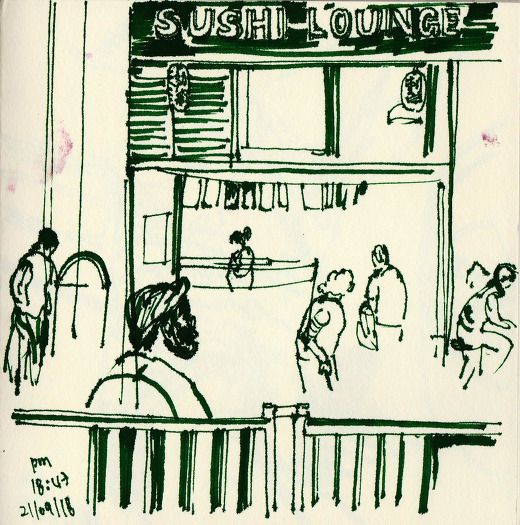 SUSHI LOUNGE
pm
18:47
21/09/18